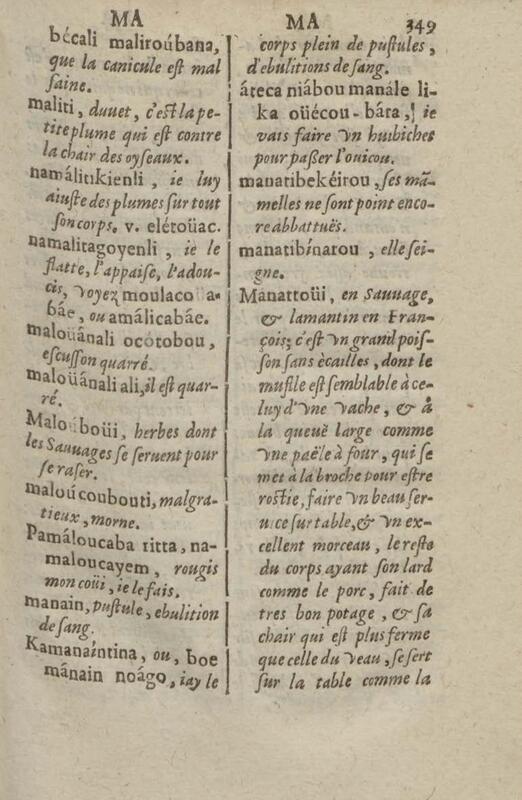 MA
bécali maliroúbana,
que la canicule est mal
saine.
maliti, duuet, c'est la pe-
tite plume qui est contre
la chair des oyseaux.
namálitikienli, ie luy
aiuste des plumes sur tout
son corps. v. elétoüac.
namalitagoyenli, ie le
flatte, l'appaise, l'adou-
cis, voyez moulaco a-
báe, ou amálicabáe.
malouánali ocótobou,
escusson quarré.
maloüánali ali, il est quar-
ré.
Malouboüi, herbes dont
les Sauuages se seruent pour
se raser.
maloúcoubouti, malgra-
tieux, morne.
Pamáloucaba titta, na-
maloucayem, rougis
mon coüi, ie le fais.
manain, pustule, ebulition
de sang.
Kamanaíntina, ou, boe
mánain noágo, iay le
MA 349
corps plein de pustules,
d'ebulitions de sang.
áteca niábou manále li-
ka oüécou-bára, ie
vais faire vn huibichet
pour passer l'ouicou.
manatibekéirou, ses mā-
melles ne sont point enco-
re abbattuës.
manatibínarou, elle sei-
gne.
Mánattoüi, en Sauuage,
& lamantin en Fran-
çois; c'est vn grand pois-
son sans écailles, dont le
mufle est semblable à ce-
luy d'vne vache, & à
la queuë large comme
vne paële à four, qui se
met à la broche pour estre
rostie, faire vn beau ser-
uice sur table, & vn ex-
cellent morceau, le reste
du corps ayant son lard
comme le porc, fait de
tres bon potage, & sa
chair qui est plus ferme
que celle du veau, se sert
sur la table comme la